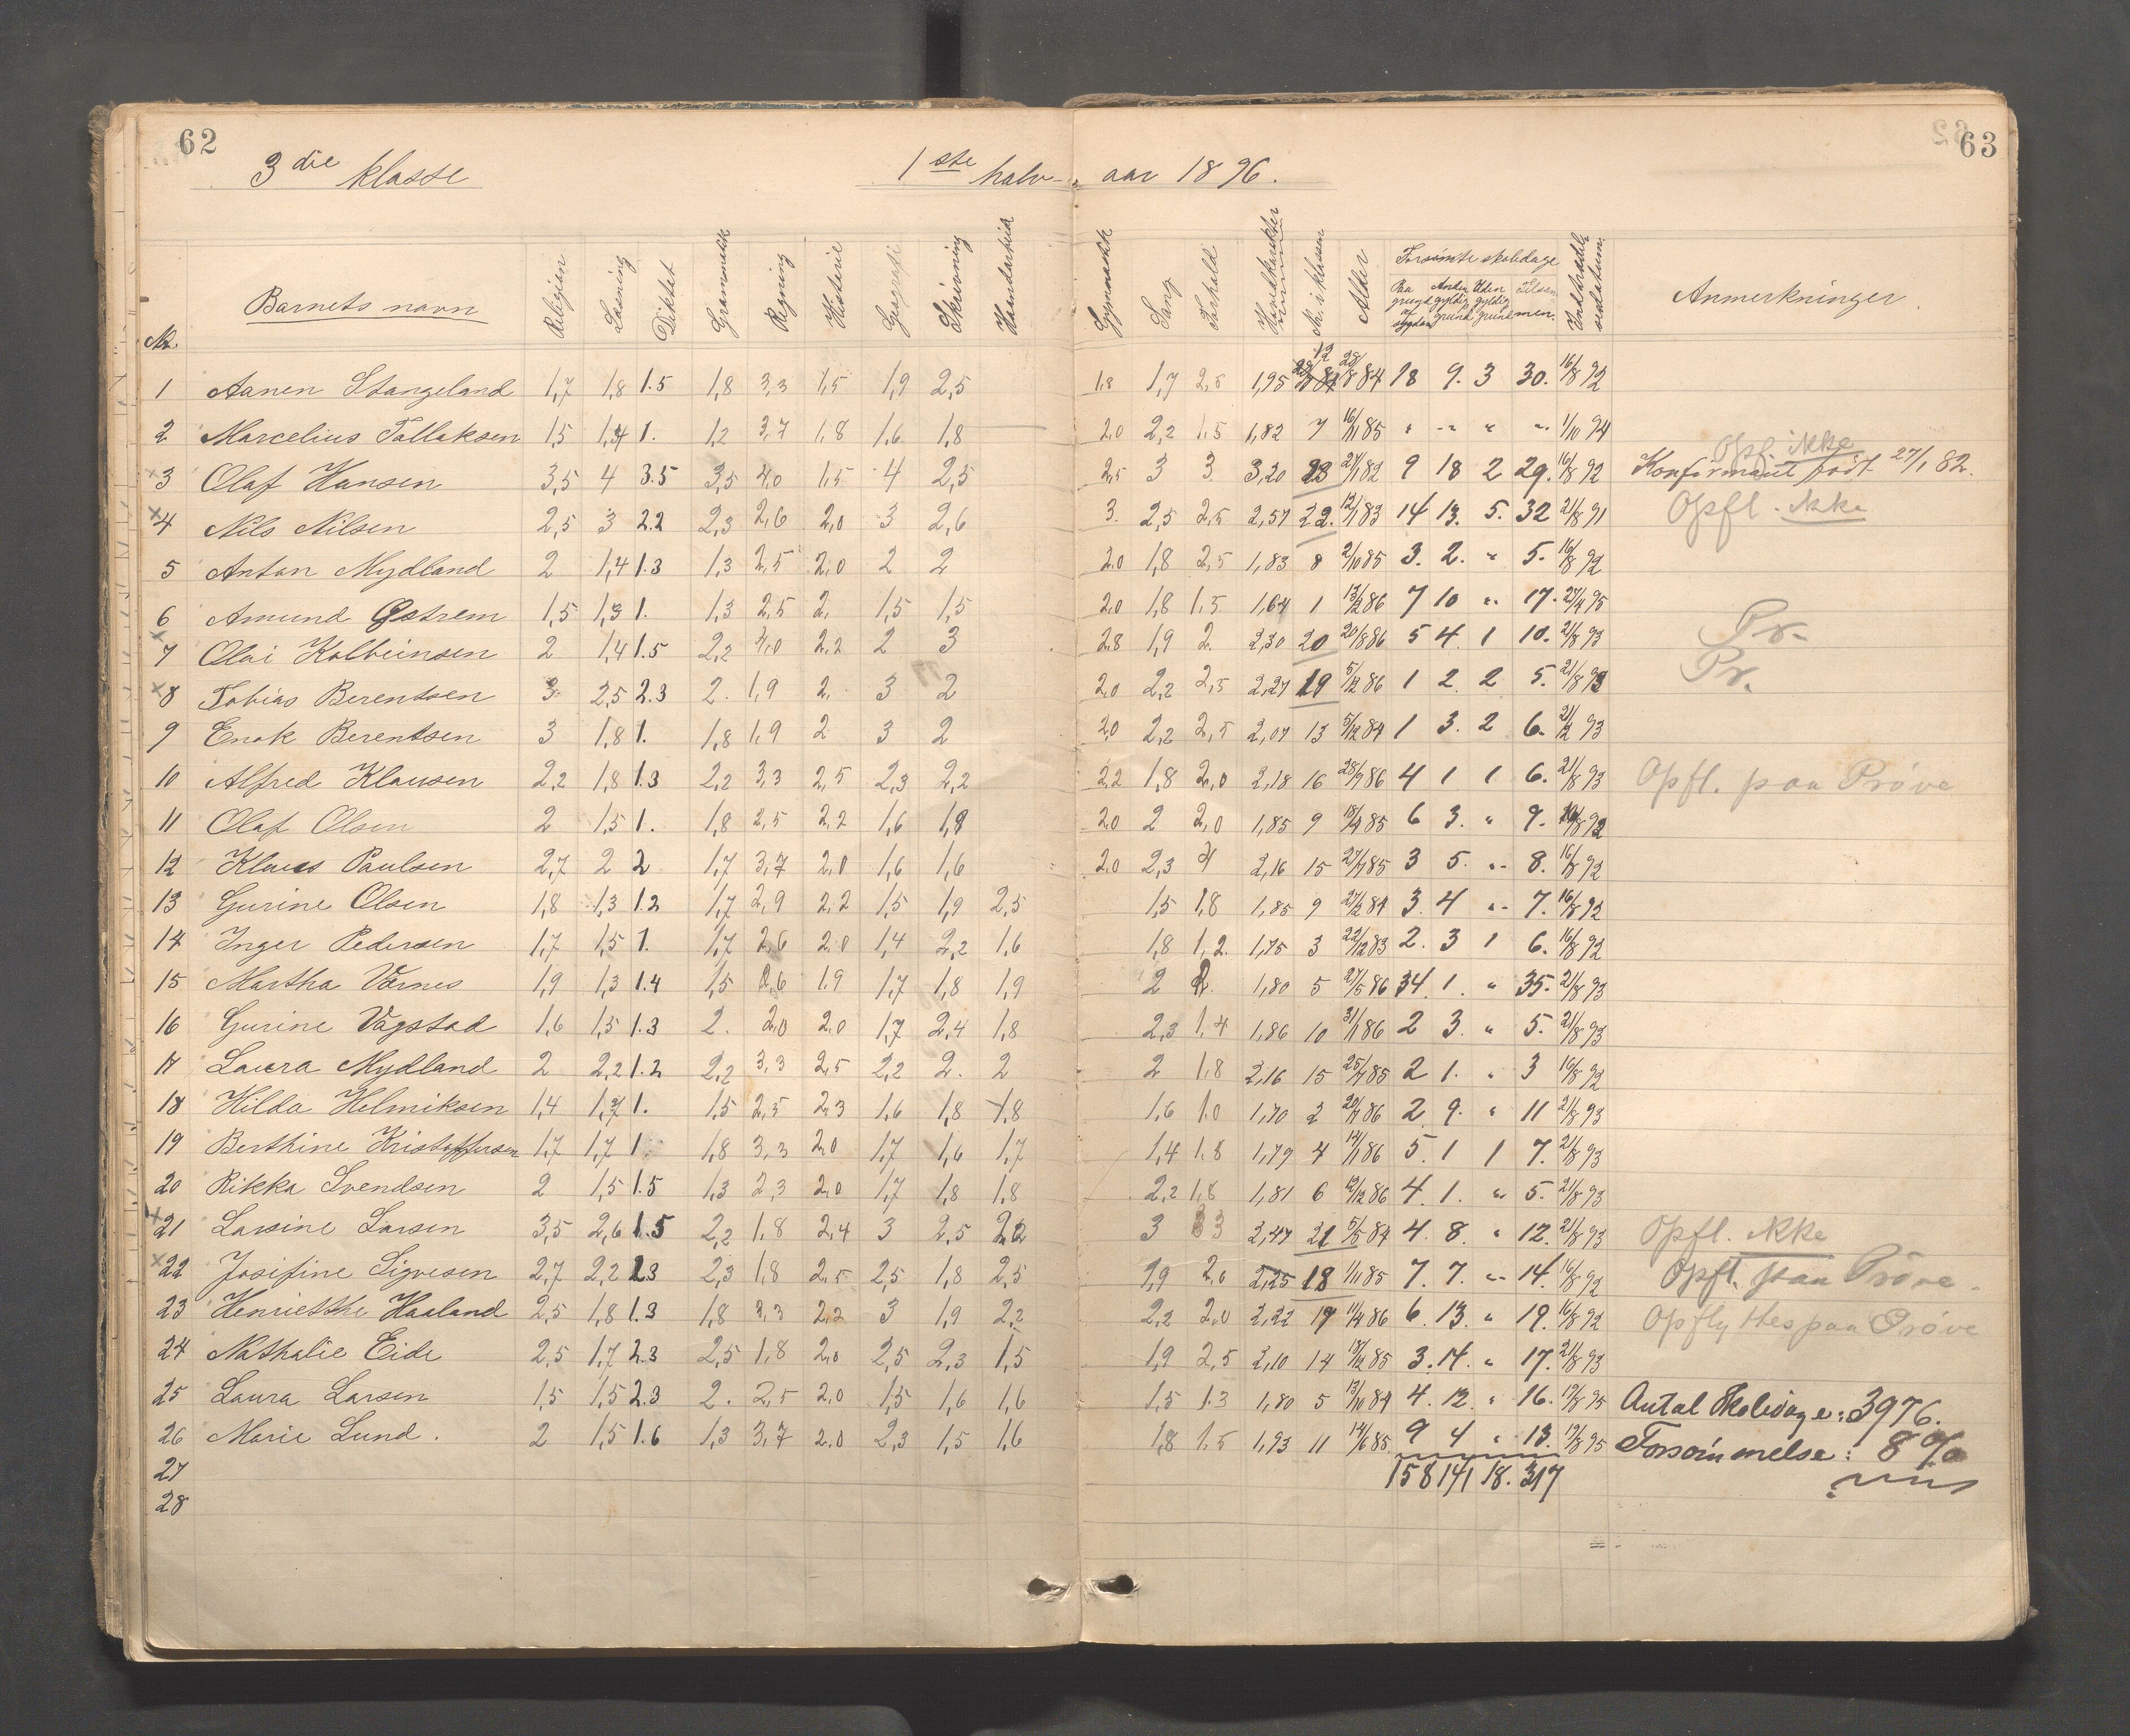 62
63
3 die klasse 1ste halv-aar 1896.
No. Barnets navn Religion Læsning Diktat Grammatik Regning Historie Geografi Skrivning Haandarbeid Gymnastik Sang Forhold Hovedkarakter Nr. i klassen Alder Forsømte skoledage Indtrædelsesdatum Anmerkninger.
Paa grund af sygdom Anden gyldig grund Uden gyldig grund Tilsammen.
1 Aanen Stangeland 1,7 1,8 1.5 1,8 3,3 1,5 1,9 2,5 1,8 1,7 2,5 1,95 12 28/8 84 18 9. 3 30. 16/8 92
2 Marcelius Tallaksen 1,5 1,4 1. 1,2 3,7 1,8 1,6 1,8 2,0 2,2 1,5 1,82 7 16/11 85 " " " " 1/10 94
Opf. ikke
×3 Olaf Hansen 3,5 4 3.5 3,5 4,0 1,5 4 2,5 2,5 3 3 3,20 23 27/1 82 9 18 2 29. 16/8 92 Konfirmant født 27/1 82.
×4 Nils Nilsen 2,5 3 2.2 2,3 2,6 2,0 3 2,6 3. 2,5 2,5 2,57 22. 12/1 83 14 13. 5. 32 21/8 91 Opfl. ikke
5 Anton Mydland 2 1,4 1.3 1,3 2,5 2,0 2 2 2,0 1,8 2,5 1,83 8 2/10 85 3. 2. " 5. 16/8 92
6 Amund Østrem 1,5 1,3 1. 1,3 2,5 2, 1,5 1,5 2,0 1,8 1,5 1,64 1 13/2 86 7 10 " 17. 27/4 95
×7 Olai Kolbeinsen 2 1,4 1.5 2,2 4,0 2,2 2 3 2,8 1,9 2. 2,30 20 20/8 86 5 4. 1 10. 21/8 93 Pr.
×8 Tobias Berentsen 3 2,5 2.3 2. 1,9 2, 3 2 2,0 2,2 2,5 2,27 19 5/12 86 1 2. 2 5. 21/8 93 Pr.
9 Enok Berentsen 3 1,8 1. 1,8 1,9 2 3 2 2,0 2,2 2,5 2,07 13 5/12 84 1 3. 2 6. 21/12 93
10 Alfred Klausen 2,2 1,8 1.3 2,2 3,3 2,5 2,3 2,2 2,2 1,8 2,0 2,18 16 28/9 86 4 1 1 6. 21/8 93 Opfl. paa Prøve
11 Olaf Olsen 2 1,5 1. 1,8 2,5 2,2 1,6 1,8 2,0 2 2,0 1,85 9 18/9 85 6 3. " 9. 16/8 92
12 Klaus Paulsen 2,7 2 2 1,7 3,7 2,0 1,6 1,6 2,0 2,3 2,16 15 27/7 85 3 5. " 8. 16/8 92
13 Gurine Olsen 1,8 1,3 1.2 1,7 2,9 2,2 1,5 1,9 2,5 1,5 1,8 1,85 9 27/2 84 3. 4 " 7. 16/8 92
14 Inger Pedersen 1,7 1,5 1. 1,7 2,6 2,0 1,4 2,2 1,6 1,8 1,2. 1,75 3 22/12 83 2. 3 1 6. 16/8 92
15 Martha Varnes 1,9 1,3 1.4 1,5 2,6 1,9 1,7 1,8 1,9 2 2. 1,80 5 27/5 86 34. 1. " 35. 21/8 93
16 Gurine Vagstad 1,6 1,5 1.3 2. 2,0 2,0 1,7 2,4 1,8 2,3 1,4 1,86 10 31/1 86 2 3. " 5. 21/8 93
17 Laura Mydland 2 2,2 1.2 2,2 3,3 2,5 2,2 2. 2 2 1,8 2,16 15 25/7 85 2 1. " 3 16/8 92
18 Hilda Helmiksen 1,4 1,7 1. 1,5 2,5 2,3 1,6 1,8 1,8 1,6 1,0 1,70 2 20/7 86 2. 9. " 11 21/8 93
19 Berthine Kristoffersen 1,7 1,7 1 1,8 3,3 2,0 1,7 1,6 1,7 1,4 1,8 1,79 4 14/1 86 5. 1 1 7. 21/8 93
20 Rikka Svendsen 2 1,5 1.5 1,3 2,3 2,0 1,7 1,8 1,8 2,2 1,8 1,81 6 12/12 86 4. 1. " 5. 21/8 93
×21 Larsine Larsen 3,5 2,6 1.5 2,2 1,8 2,4 3 2,5 2,2 3 3 2,47 21 5/5 84 4. 8. " 12. 21/8 93 Opfl. ikke
×22 Josifine Sigvesen 2,7 2,2 2.3 2,3 1,8 2,5 2,5 1,8 2,5 1,9 2,0 2,25 18 1/11 85 7. 7. " 14. 16/8 92 Opfl. paa Prøve.
23 Henriette Haaland 2,5 1,8 1.3 1,8 3,3 2,2 3 1,9 2,2 2,2 2,0 2,22 17 11/4 86 6. 13. " 19. 16/8 92 Opflyttes paa Prøve
24 Nathalie Eide 2,5 1,7 2.3 2,5 1,8 2,0 2,5 2,3 1,5 1,9 2,5 2,10 14 18/12 85 3. 14. " 17. 21/8 93
25 Laura Larsen 1,5 1,5 2.3 2. 2,5 2,0 1,5 1,6 1,6 1,5 1.3 1,80 5 13/10 84 4. 12. " 16. 17/8 95 Antal Skoledage: 3976.
26 Marie Lund. 2 1,5 1.6 1,3 3,7 2,0 2,3 1,5 1,6 1,8 1,5 1,93 11 14/6 85 9 4 " 13. 17/8 95 Forsømmelse: 8 %
27 158 141 18. 317
28